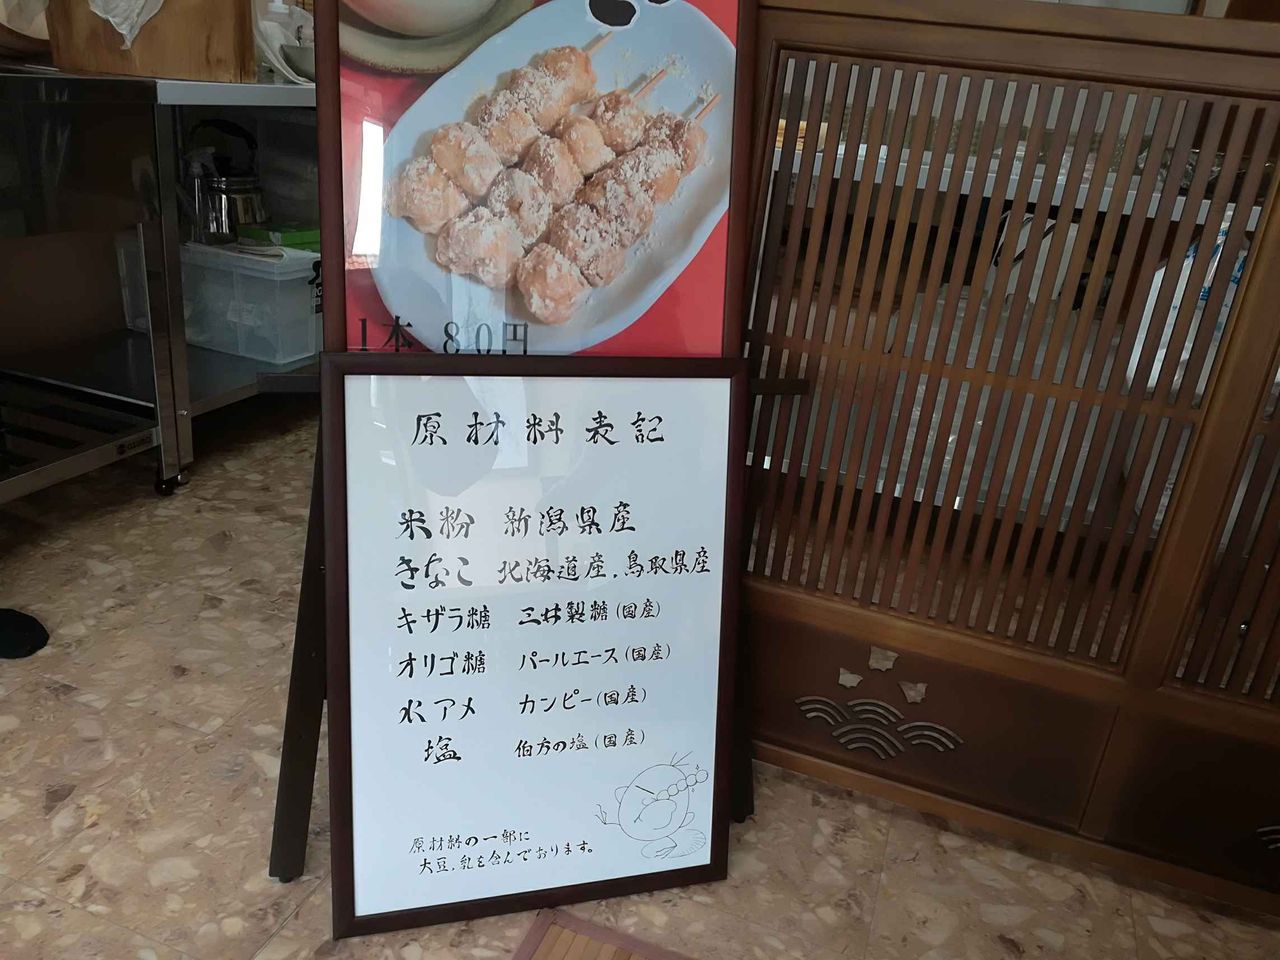 1本 80円
原材料表記
米粉 新潟県産
きなこ 北海道産.鳥取県産
キザラ糖 三井製糖(国産)
オリゴ糖 パールエース(国産)
水アメ カンピー(国産)
塩 伯方の塩(国産)
原材料の一部に
大豆.乳を含んでおります。